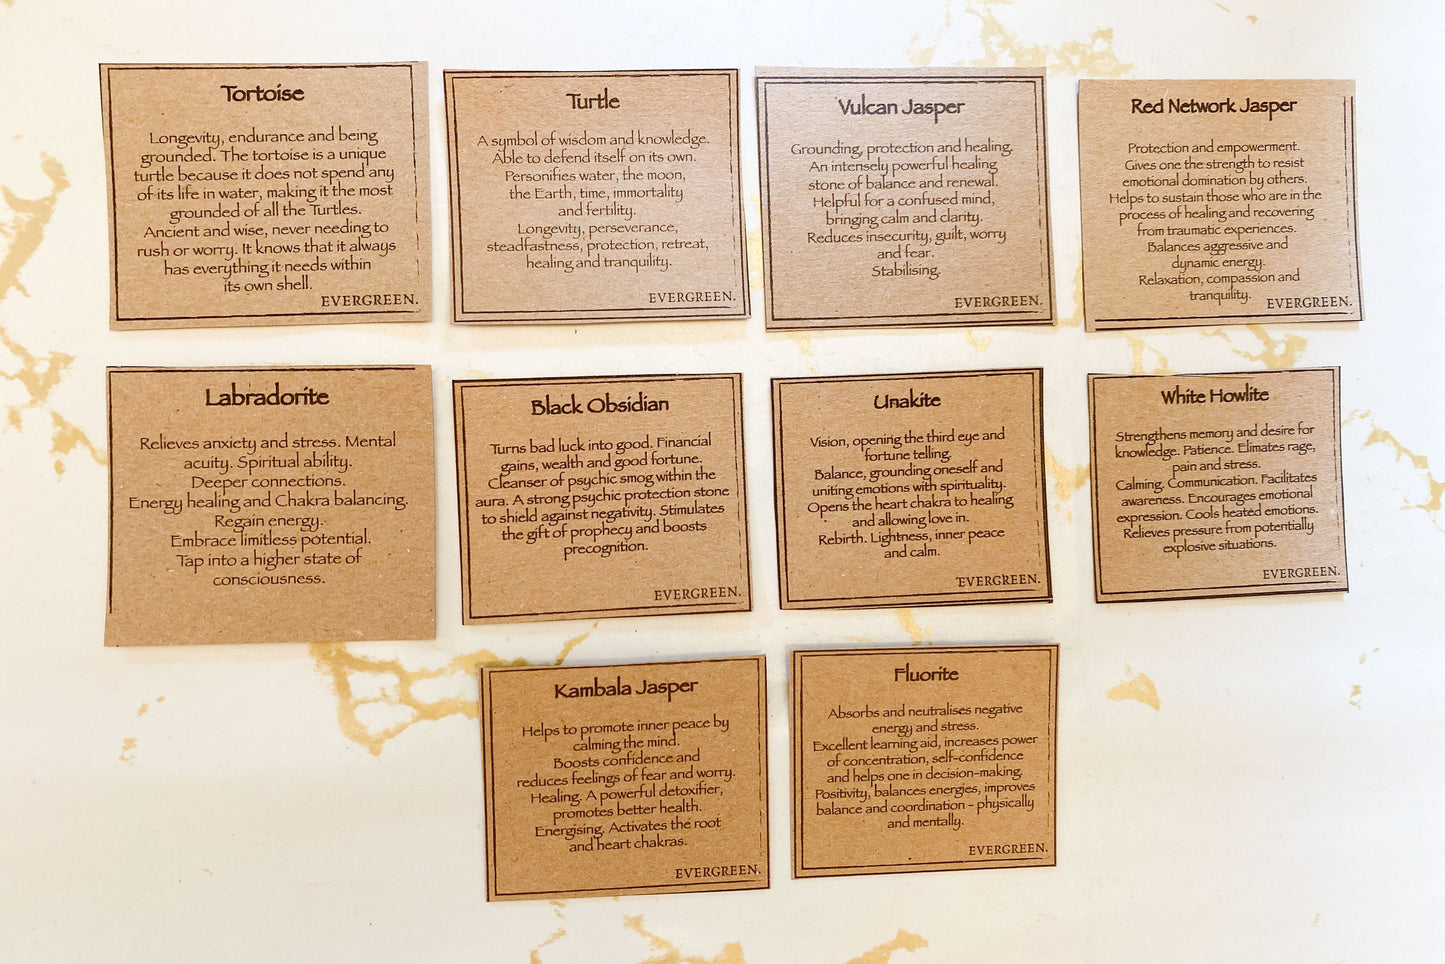 Tortoise
Longevity, endurance and being
grounded. The tortoise is a unique
turtle because it does not spend any
of its life in water, making it the most
grounded of all the Turtles.
Ancient and wise, never needing to
rush or worry. It knows that it always
has everything it needs within
its own shell.
EVERGREEN.
Turtle
A symbol of wisdom and knowledge.
Able to defend itself on its own.
Personifies water, the moon,
the Earth, time, immortality
and fertility.
Longevity, perseverance,
steadfastness, protection, retreat,
healing and tranquility.
EVERGREEN.
Vulcan Jasper
Grounding, protection and healing.
An intensely powerful healing
stone of balance and renewal.
Helpful for a confused mind,
bringing calm and clarity.
Reduces insecurity, guilt, worry
and fear.
Stabilising.
EVERGREEN.
Red Network Jasper
Protection and empowerment.
Gives one the strength to resist
emotional domination by others.
Helps to sustain those who are in the
process of healing and recovering
from traumatic experiences.
Balances aggressive and
dynamic energy.
Relaxation, compassion and
tranquility.
EVERGREEN.
Labradorite
Relieves anxiety and stress. Mental
acuity. Spiritual ability.
Deeper connections.
Energy healing and Chakra balancing.
Regain energy.
Embrace limitless potential.
Tap into a higher state of
consciousness.
Black Obsidian
Turns bad luck into good. Financial
gains, wealth and good fortune.
Cleanser of psychic smog within the
aura. A strong psychic protection stone
to shield against negativity. Stimulates
the gift of prophecy and boosts
precognition.
EVERGREEN.
Unakite
Vision, opening the third eye and
fortune telling.
Balance, grounding oneself and
uniting emotions with spirituality.
Opens the heart chakra to healing
and allowing love in.
Rebirth. Lightness, inner peace
and calm.
EVERGREEN.
White Howlite
Strengthens memory and desire for
knowledge. Patience. Elimates rage,
pain and stress.
Calming. Communication. Facilitates
awareness. Encourages emotional
expression. Cools heated emotions.
Relieves pressure from potentially
explosive situations.
EVERGREEN.
Kambala Jasper
Helps to promote inner peace by
calming the mind.
Boosts confidence and
reduces feelings of fear and worry.
Healing. A powerful detoxifier,
promotes better health.
Energising. Activates the root
and heart chakras.
EVERGREEN.
Fluorite
Absorbs and neutralises negative
energy and stress.
Excellent learning aid, increases power
of concentration, self-confidence
and helps one in decision-making.
Positivity, balances energies, improves
balance and coordination - physically
and mentally.
EVERGREEN.